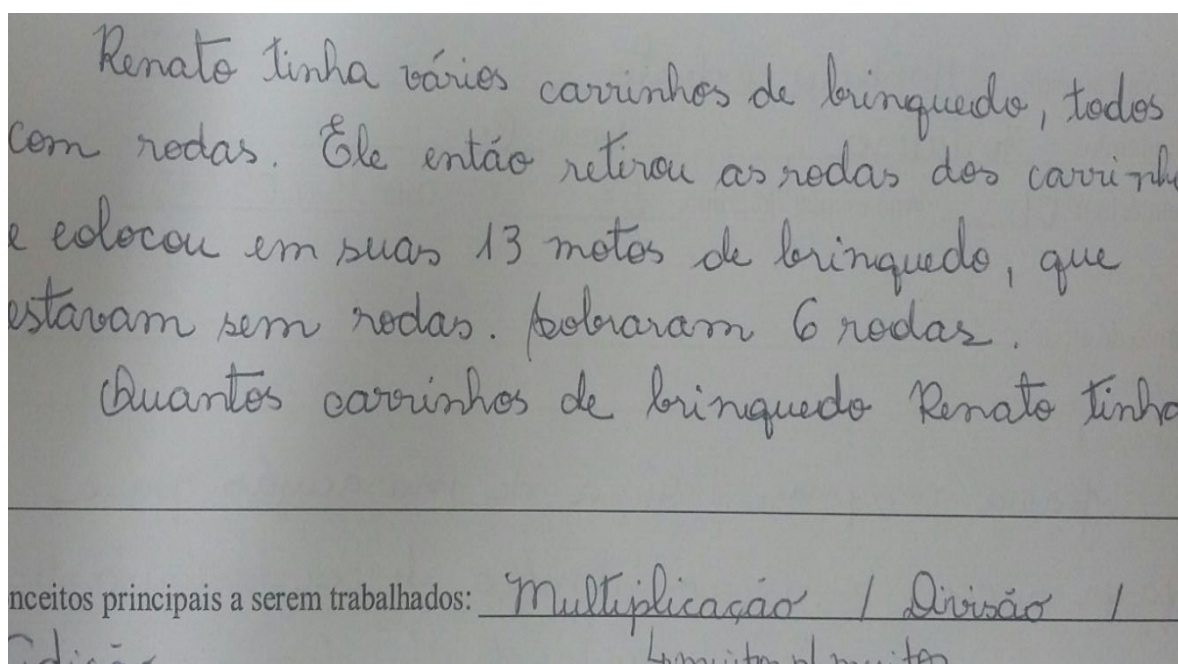 Renato tinha vários carrinhos de brinquedo, todos
com rodas. Ele então retirou as rodas dos carrinh
e colocou em suas 13 motos de brinquedo, que
estavam sem rodas. Sobraram 6 rodas.
Quantos carrinhos de brinquedo Renato tinha
nceitos principais a serem trabalhados: Multiplicação / Divisão /